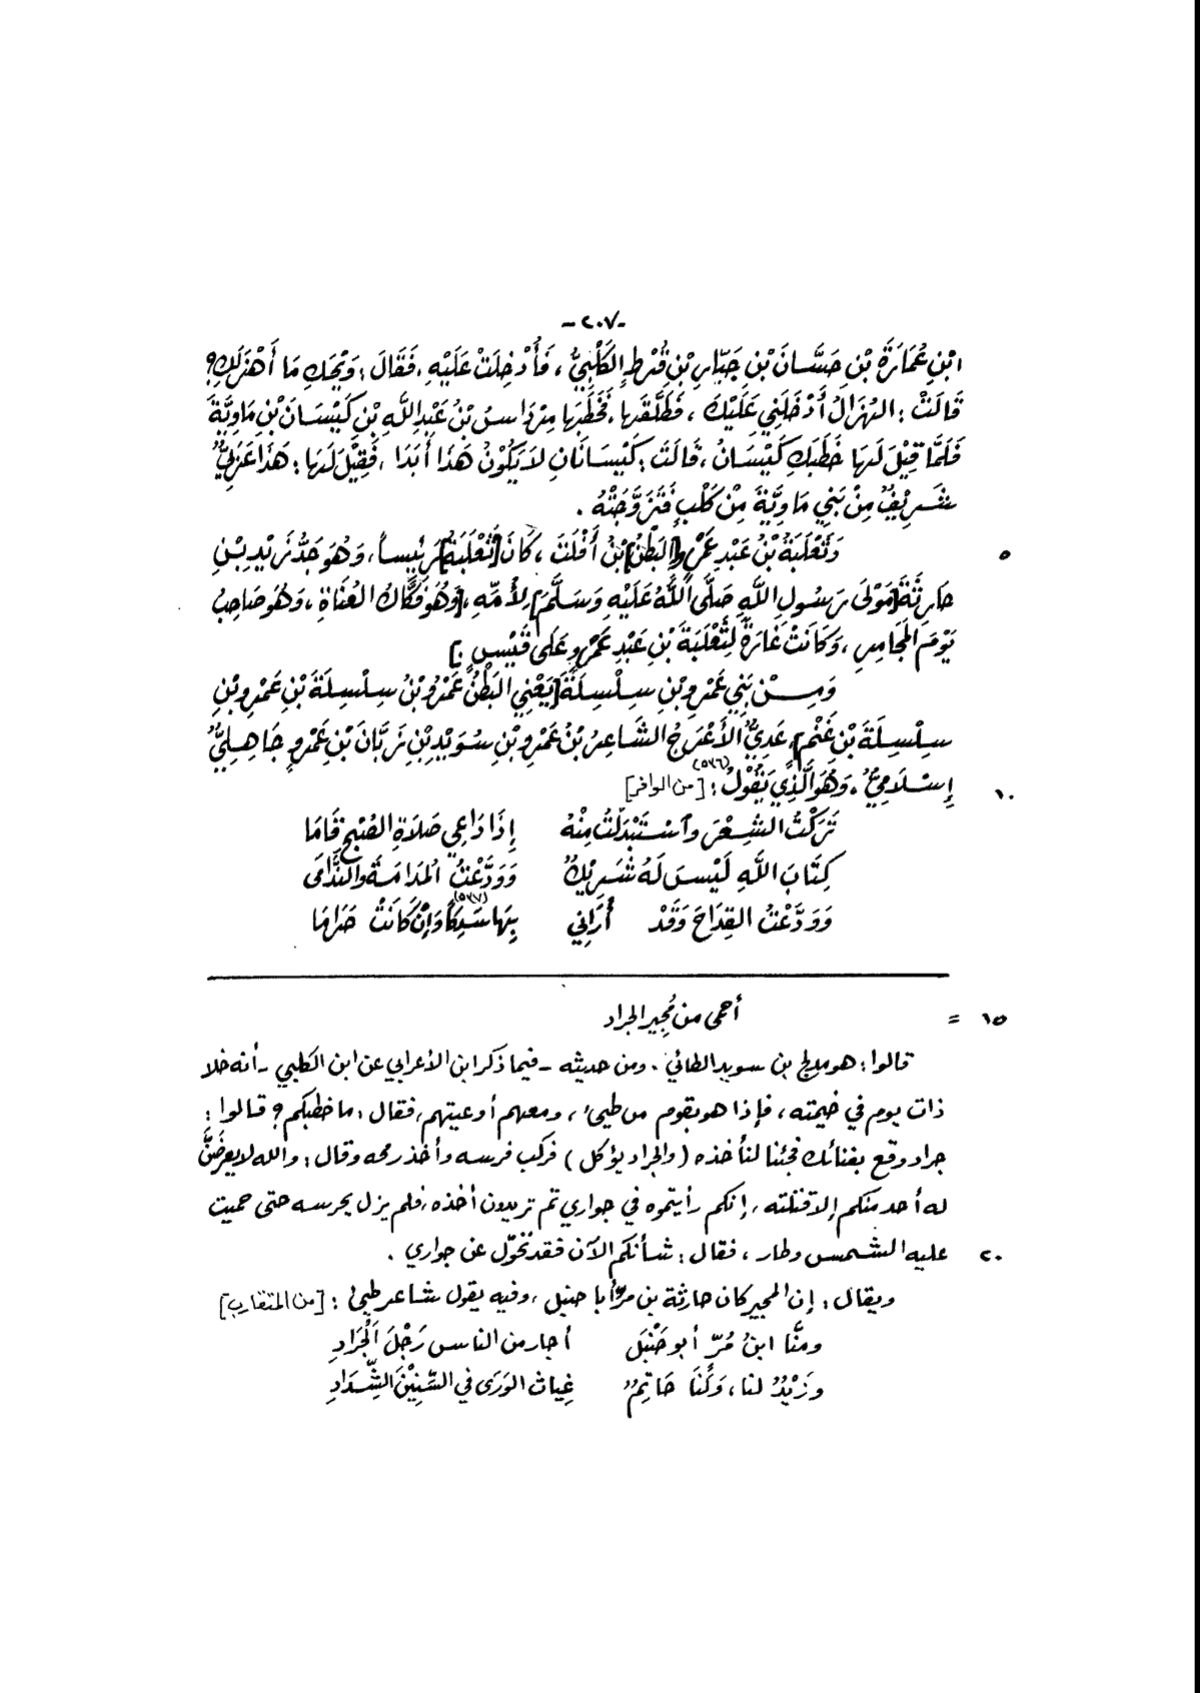 -٢٠٧-
ابْنِ عُمَارَةَ بْنِ حَسَّانَ بْنِ جَبَّارِ بْنِ قُرْطٍ الكَلْبِيُّ، فَأُدْخِلَتْ عَلَيْهِ، فَقَالَ: وَيْحَكِ مَا أَهْزَلَكِ؟
قَالَتْ: الهُزَالُ أَدْخَلَنِي عَلَيْكَ، فَطَلَّقَهَا، فَخَطَبَهَا مِرْدَاسُ بْنُ عَبْدِ اللَّهِ بْنِ كَيْسَانَ بْنِ مَاوِيَّةَ
فَلَمَّا قِيْلَ لَهَا خَطَبَكِ كَيْسَانُ، قَالَتْ: كَيْسَانَانِ لاَ يَكُوْنُ هَذَا أَبَدَا، فَقِيْلَ لَهَا: هَذَا عَرَبِيٌّ
شَرِيْفٌ مِنْ بَنِي مَاوِيَّةَ مِنْ كَلْبٍ فَتَزَوَّجَتْهُ.
وَثَعْلَبَةُ بْنُ عَبْدِ عَمْرٍو [البَطْنُ] بْنُ أَفْلَتَ، كَانَ [ثَعْلَبَةُ] رَئِيساً، وَهُوَ جَدُّ زَيْدِ بْنِ
حَارِثَةَ [مَوْلَى رَسُولِ اللَّهِ صَلَّى اللَّهُ عَلَيْهِ وَسَلَّمَ] لِأُمِّهِ، [وَهُوَ فَكَّاكُ العُنَاةِ، وَهُوَ صَاحِبُ
يَوْمَ المَجَامِرِ، وَكَانَتْ غَارَةً لِثَعْلَبَةَ بْنِ عَبْدِ عَمْرٍو عَلَى قَيْسٍ.]
وَمِنْ بَنِي عَمْرِو بْنِ سِلْسِلَةَ [يَعْنِي البَطْنُ عَمْرُو بْنُ سِلْسِلَةَ بْنِ عَمْرِو بْنِ
سِلْسِلَةَ بْنِ غَنْمٍ] عَدِيُّ الأَعْرَجُ الشَّاعِرُ بْنُ عَمْرِو بْنِ سُوَيْدِ بْنِ زَبَّانَ بْنِ عَمْرٍو جَاهِلِيٌّ
١٠ إِسْلَامِيٌّ، وَهُوَ الَّذِي يَقُوْلُ: (٥٢٦) [من الوافر]
تَرَكْتُ الشِّعْرَ وَاسْتَبْدَلْتُ مِنْهُ إِذَا دَاعِي صَلَاةِ الصُّبْحِ قَامَا
كِتَابَ اللَّهِ لَيْسَ لَهُ شَرِيْكٌ وَوَدَّعْتُ المُدَامَةَ وَالنَّدَامَى
وَوَدَّعْتُ القِدَاحَ وَقَدْ أُرَانِي بِهَا سَدِكاً (٥٢٧) وَإِنْ كَانَتْ حَرَامَا
١٥ = أحمى من مُجير الجراد
قالوا: هو مدلج بن سويد الطائي. ومن حديثه - فيما ذكر ابن الأعرابي عن ابن الكلبي - أنه خلا
ذات يوم في خيمته، فإذا هو بقوم من طيئ، ومعهم أوعيتهم، فقال: ما خطبكم؟ قالوا:
جراد وقع بفنائك فجئنا لنأخذه (والجراد يؤكل) فركب فرسه وأخذ رمحه وقال: والله لا يعرضَنَّ
له أحد منكم إلا قتلته، إنكم رأيتموه في جواري ثم تريدون أخذه، فلم يزل يحرسه حتى حميت
٢٠ عليه الشمس وطار، فقال: شأنكم الآن فقد تحوّل عن جواري.
ويقال: إن المجير كان حارثة بن مرّ أبا حنبل، وفيه يقول شاعر طيئ: [من المتقارب]
ومنَّا ابنُ مُرّ أبو حَنْبَل أجار من الناس رَجْلَ الجَرَادِ
وزَيْدٌ لنا، وَلَنَا حَاتِمٌ غِياث الوَرَى في السِّنِيْنَ الشِّدَادِ